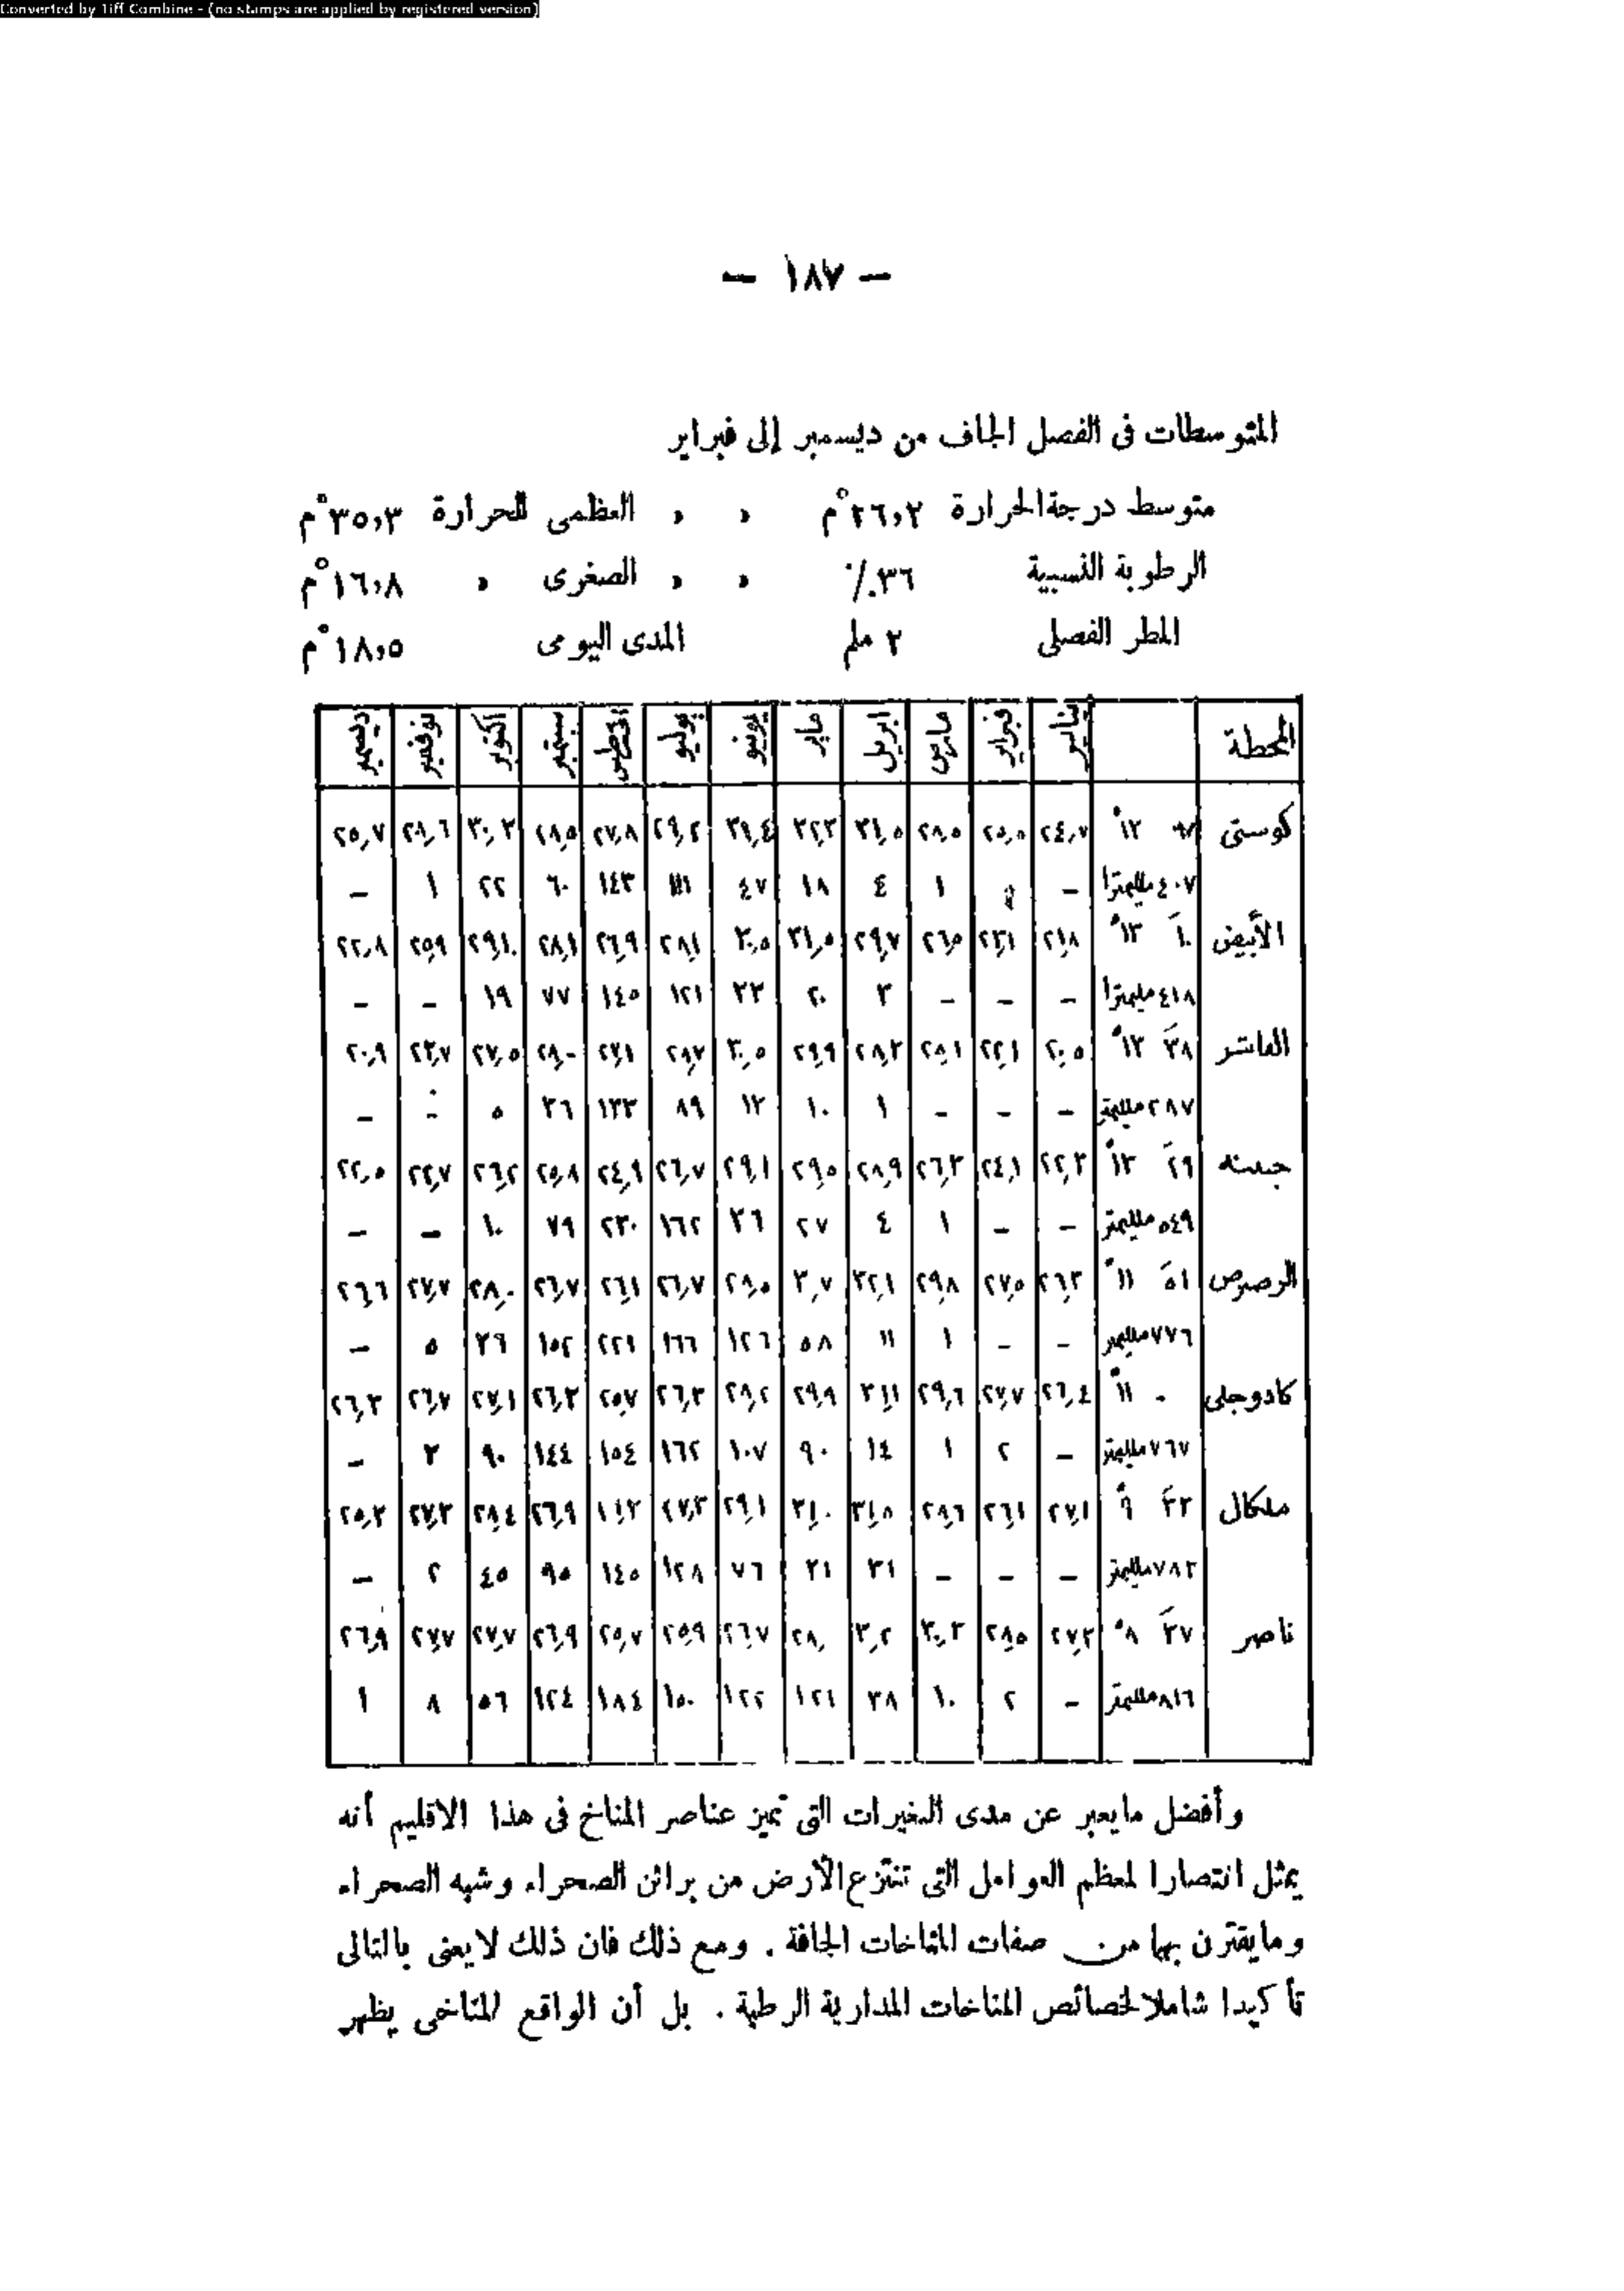 Converted by Tiff Combine - (no stamps are applied by registered version)
— ١٨٧ —
المتوسطات فى الفصل الجاف من ديسمبر إلى فبراير
متوسط درجة الحرارة ٢٦٫٢°م » » العظمى للحرارة ٣٥٫٣°م
الرطوبة النسبية ٣٦٪ » » الصغرى » ١٦٫٨°م
المطر الفصلى ٢ ملم المدى اليومى ١٨٫٥°م
المحطة يناير فبراير مارس ابريل مايو يونيو يوليو أغسطس سبتمبر أكتوبر نوفمبر ديسمبر
كوستى ١٣° ٢٤٫٧ ٢٥٫٥ ٢٨٫٥ ٣١٫٥ ٣٢٫٣ ٢٩٫٢ ٢٧٫٨ ٢٨٫٥ ٣٠٫٣ ٢٨٫٦ ٢٥٫٧
٤٠٧ ملليمترا – ١ ٤ ١٨ ٤٧ ١٤٣ ٦٠ ٢٢ ١ –
الأبيض ١٠ ١٣° ٢١٫٨ ٢٣٫١ ٢٦٫٥ ٢٩٫٧ ٣١٫٥ ٣٠٫٥ ٢٨٫١ ٢٦٫٩ ٢٨٫١ ٢٩٫١ ٢٥٫٩ ٢٢٫٨
٤١٨ مليمترا – – – ٣ ٢٠ ٣٣ ١٢١ ١٤٥ ٧٧ ١٩ – –
الفاشر ٣٨ ١٣° ٢٠٫٥ ٢٢٫١ ٢٥٫١ ٢٨٫٣ ٢٩٫٩ ٣٠٫٥ ٢٨٫٧ ٢٧٫١ ٢٨٫٠ ٢٧٫٥ ٢٣٫٧ ٢٠٫٩
٢٨٧ ملليمتر – – – ١ ١٠ ١٢ ٨٩ ١٣٣ ٣٦ ٥ – –
جنينه ٢٩ ١٣° ٢٢٫٣ ٢٤٫١ ٢٦٫٣ ٢٨٫٩ ٢٩٫٥ ٢٩٫١ ٢٦٫٧ ٢٤٫٩ ٢٥٫٨ ٢٦٫٢ ٢٤٫٧ ٢٢٫٥
٥٤٩ ملليمتر – – ١ ٤ ٢٧ ٣٦ ١٦٢ ٢٣٠ ٧٩ ١٠ – –
الرصيرص ٥١ ١١° ٢٦٫٣ ٢٧٫٥ ٢٩٫٨ ٣٢٫١ ٣٠٫٧ ٢٨٫٥ ٢٦٫٧ ٢٦٫١ ٢٦٫٧ ٢٨٫٠ ٢٧٫٧ ٢٦٫٦
٧٧٦ ملليمتر – – ١ ١١ ٥٨ ١٢٦ ١٦٦ ٢٢١ ١٥٢ ٣٦ ٥ –
كادوجلى ٠ ١١° ٢٦٫٤ ٢٧٫٧ ٢٩٫٦ ٣١٫١ ٢٩٫٩ ٢٨٫٢ ٢٦٫٣ ٢٥٫٧ ٢٦٫٣ ٢٧٫١ ٢٦٫٧ ٢٦٫٣
٧٦٧ ملليمتر – ٢ ١ ١٤ ٩٠ ١٠٧ ١٦٢ ١٥٤ ١٤٤ ٩٠ ٣ –
ملكال ٣٣ ٩° ٢٧٫١ ٢٦٫١ ٢٨٫٦ ٣١٫٨ ٣١٫٠ ٢٩٫١ ٢٧٫٣ ٢٦٫٩ ٢٨٫٤ ٢٧٫٣ ٢٥٫٣
٧٨٣ ملليمتر – – – ٣١ ٢١ ٧٦ ١٢٨ ١٤٥ ٩٥ ٤٥ ٢ –
ناصر ٣٧ ٨° ٢٧٫٣ ٢٨٫٥ ٣٠٫٣ ٣٠٫٢ ٢٨٫ ٢٦٫٧ ٢٥٫٩ ٢٥٫٧ ٢٦٫٩ ٢٧٫٧ ٢٧٫٧ ٢٦٫٩
٨١٦ ملليمتر – ٢ ١٠ ٣٨ ١٢١ ١٢٢ ١٥٠ ١٨٤ ١٢٤ ٥٦ ٨ ١
وأفضل مايعبر عن مدى التغيرات التى تميز عناصر المناخ فى هذا الاقليم أنه
يمثل انتصارا لمعظم العوامل التى تنتزع الأرض من براثن الصحراء وشبه الصحراء
ومايقترن بهما من صفات المناخات الجافة . ومع ذلك فان ذلك لايعنى بالتالى
تأكيدا شاملا لخصائص المناخات المدارية الرطبة . بل أن الواقع المناخى يظهر